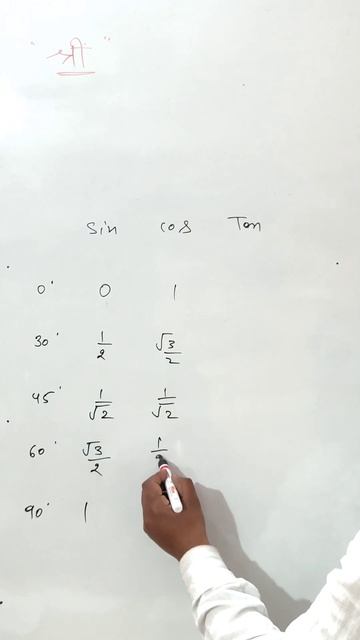 " श्री "
Sin cos Tan
0° 0 1
30° 1/2 √3/2
45° 1/√2 1/√2
60° √3/2 1/
90° 1